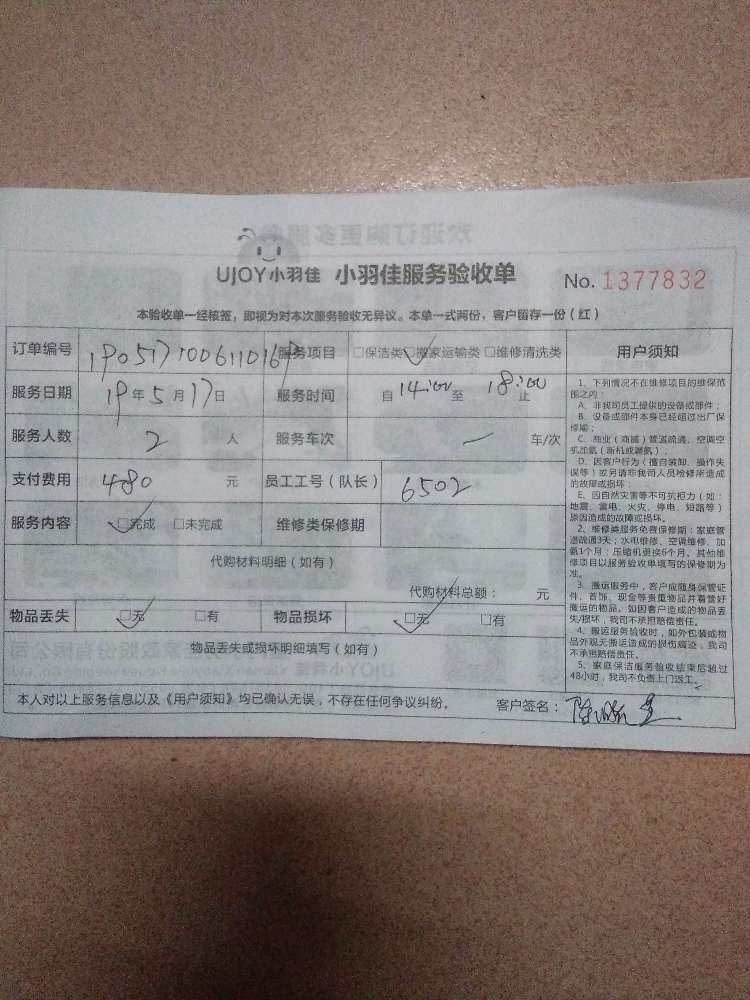 UJOY小羽佳 小羽佳服务验收单 No. 1377832
本验收单一经核签，即视为对本次服务验收无异议。本单一式两份，客户留存一份（红）
订单编号 190517100611016 服务项目 □保洁类 □搬家运输类 □维修清洗类
服务日期 19年5月17日 服务时间 自14:00至18:00止
服务人数 2 人 服务车次 一 车/次
支付费用 480 元 员工工号（队长） 6502
服务内容 □完成 □未完成 维修类保修期
代购材料明细（如有）
代购材料总额： 元
物品丢失 □无 □有 物品损坏 □无 □有
物品丢失或损坏明细填写（如有）
本人对以上服务信息以及《用户须知》均已确认无误，不存在任何争议纠纷。 客户签名：
用户须知
1、下列情况不在维修项目的维保范
围之内：
A、非我司员工提供的设备或部件；
B、设备或部件本身已经超过出厂保
修期；
C、商业（商铺）管道疏通、空调空
机加氨（新机或漏氨）；
D、因客户行为（擅自装卸、操作失
误等）或另请非我司人员检修所造成
的故障或损坏；
E、因自然灾害等不可抗拒力（如：
地震、雷电、火灾、停电、短路等）
原因造成的故障或损坏。
2、维修类服务免费保修期：家庭管
道疏通3天；水电维修、空调维修、加
氨1个月；压缩机更换6个月。其他维
修项目以服务验收单填写的保修期为
准。
3、搬运服务中，客户应随身保管证
件、首饰、现金等贵重物品并看管好
搬运的物品。如因客户造成的物品丢
失/损坏，我司不承担赔偿责任。
4、搬运服务验收时，如外包装或物
品外观无搬运造成的损伤痕迹，我司
不承担赔偿责任。
5、家庭保洁服务验收结束后超过
48小时，我司不负责上门返工。